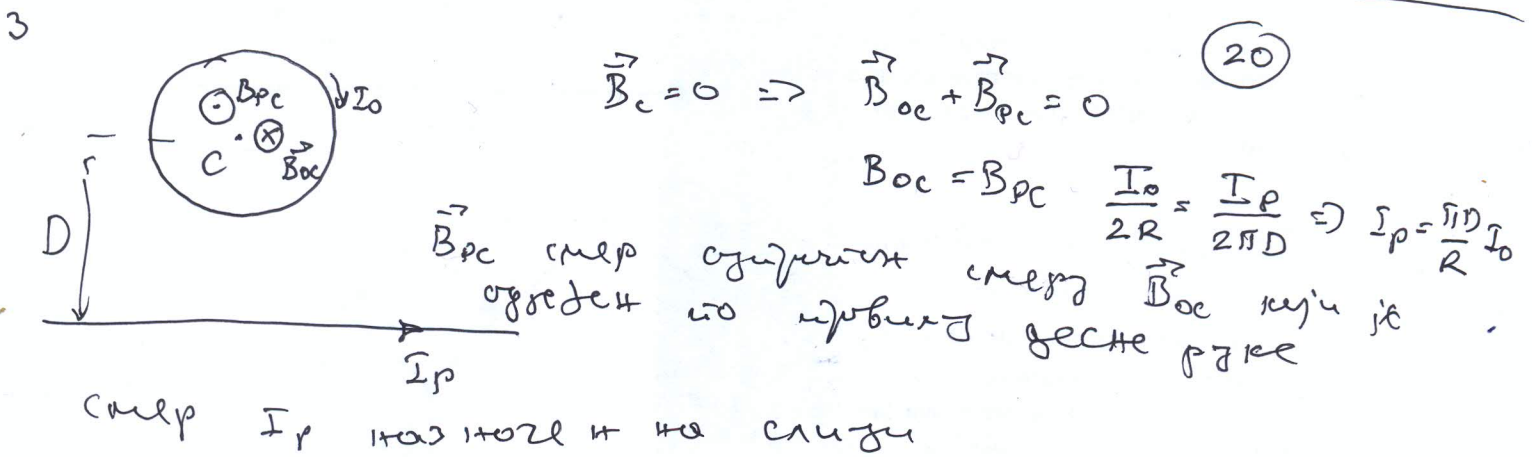 3
20
B⃗c = 0 => B⃗oc + B⃗pc = 0
Bpc
I0
C
B⃗oc
Boc = Bpc I0/2R = Ip/2πD => Ip = πD/R I0
D
B⃗pc смер супротан смеру B⃗oc који је
одређен по правилу десне руке
Ip
смер Ip назначен на слици